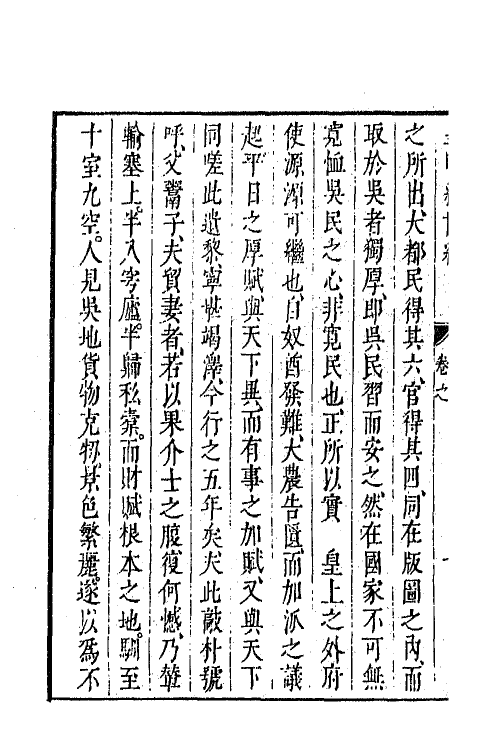 之所出大都民得其六官得其四同在版圖之內而
取於吳者獨厚即吳民習而安之然在國家不可無
寬恤吳民之心非寬民也正所以實 皇上之外府
使源源可繼也自奴酋發難大農告匱而加派之議
起平日之厚賦與天下異而有事之加賦又與天下
同嗟此遺黎寧堪竭澤今行之五年矣夫此敲朴號
呼父鬻子夫質妻者若以果介士之腹復何憾乃輦
輸塞上半入穹廬半歸私橐而財賦根本之地馴至
十室九空人見吳地貨物充牣景色繁麗遂以為不
卷之